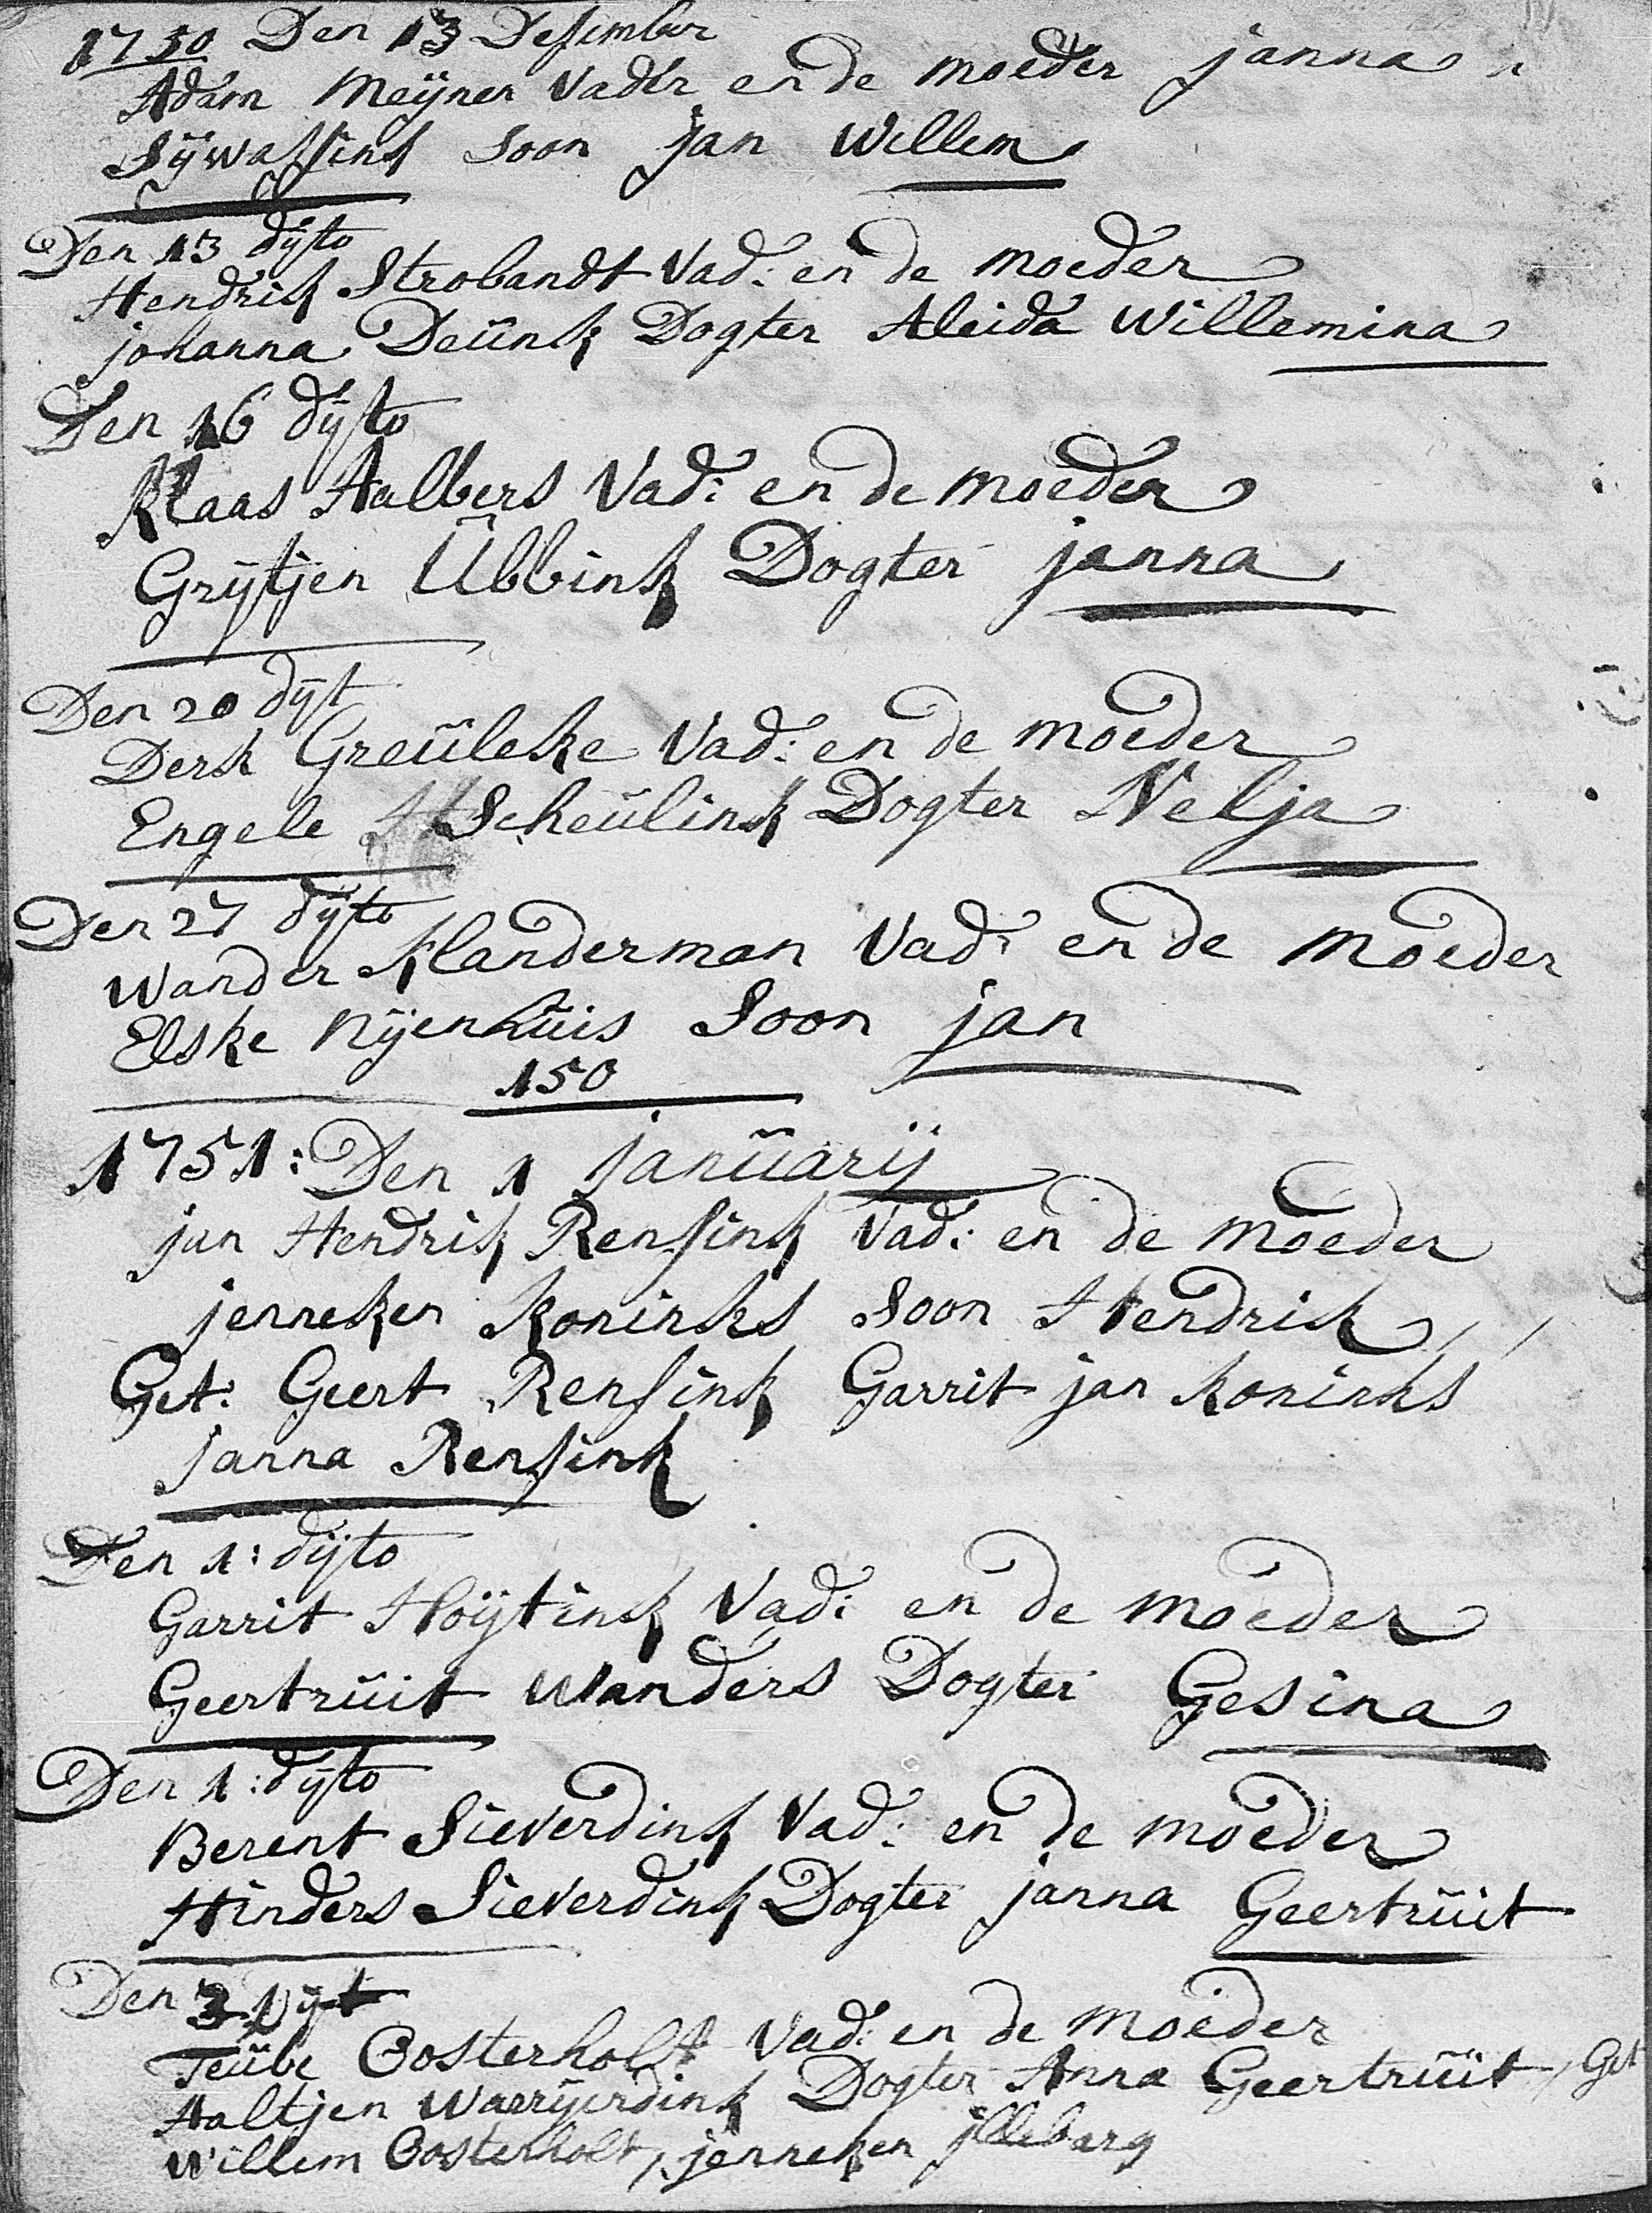 1750 Den 13 Desember
Adam Meijner Vader en de moeder janna
Sijwassink soon Jan Willem
Den 13 dijto
Hendrik Strobandt Vad: en de moeder
johanna Deünk Dogter Aleida Willemina
Den 16 dijto
Klaas Aalbers Vad: en de moeder
Grijtjen Übbink Dogter janna
Den 20 dijt
Derk Greüleke Vad: en de moeder
Engele Scheülink Dogter Nelja
Den 27 dijto
Wander Klanderman Vad: en de moeder
Elske Nijenhüis Soon jan
150
1751: Den 1 janüarij
jan Hendrik Rensink Vad: en de moeder
jenneken Koninks Soon Hendrik
Get: Geert Rensink Garrit jan Koninks
janna Rensink
Den 1: dijto
Garrit Hoijtink Vad: en de moeder
Geertrüit Wanders Dogter Gesina
Den 1: dijto
Berent Sieverdink Vad: en de moeder
Hinders Sieverdink Dogter janna Geertrüit
Den 3 dijt
Teübe Oosterholt Vad: en de moeder
Aaltjen Warrijerdink Dogter Anna Geertrüit, Get
Willem Oosterholt, jenneken